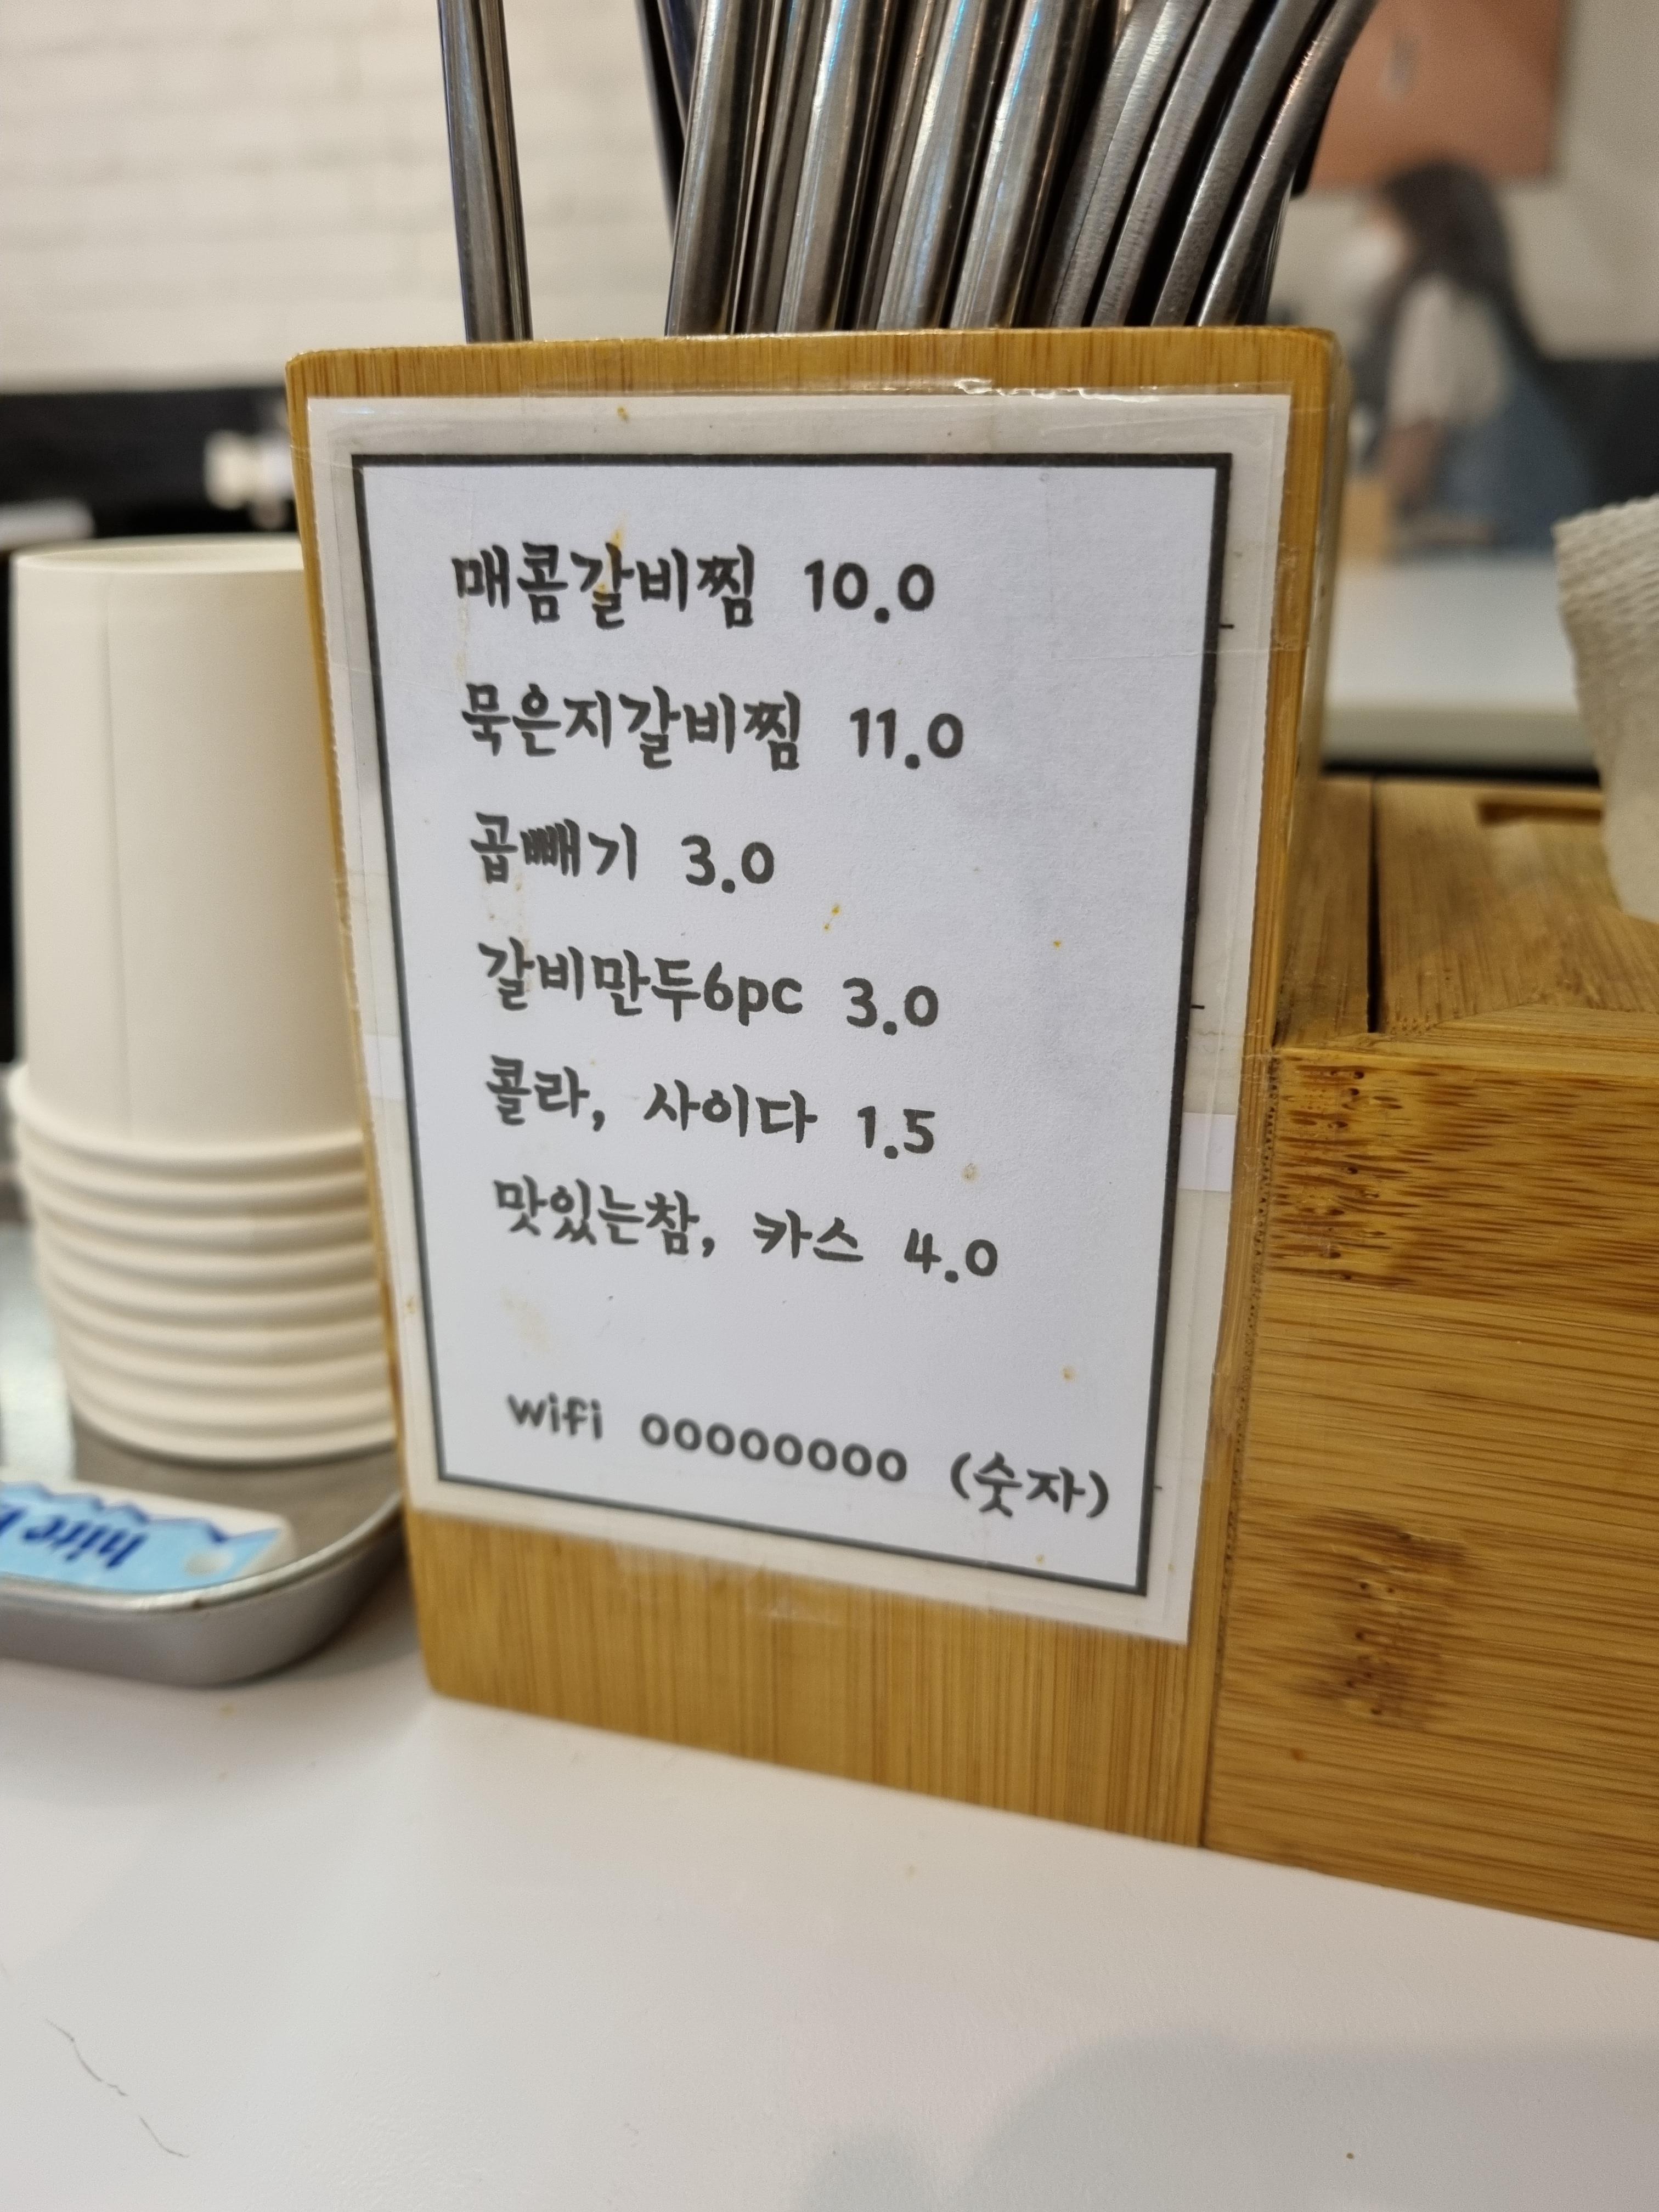 매콤갈비찜 10.0
묵은지갈비찜 11.0
곱빼기 3.0
갈비만두6pc 3.0
콜라, 사이다 1.5
맛있는참, 카스 4.0
wifi 00000000 (숫자)
hite